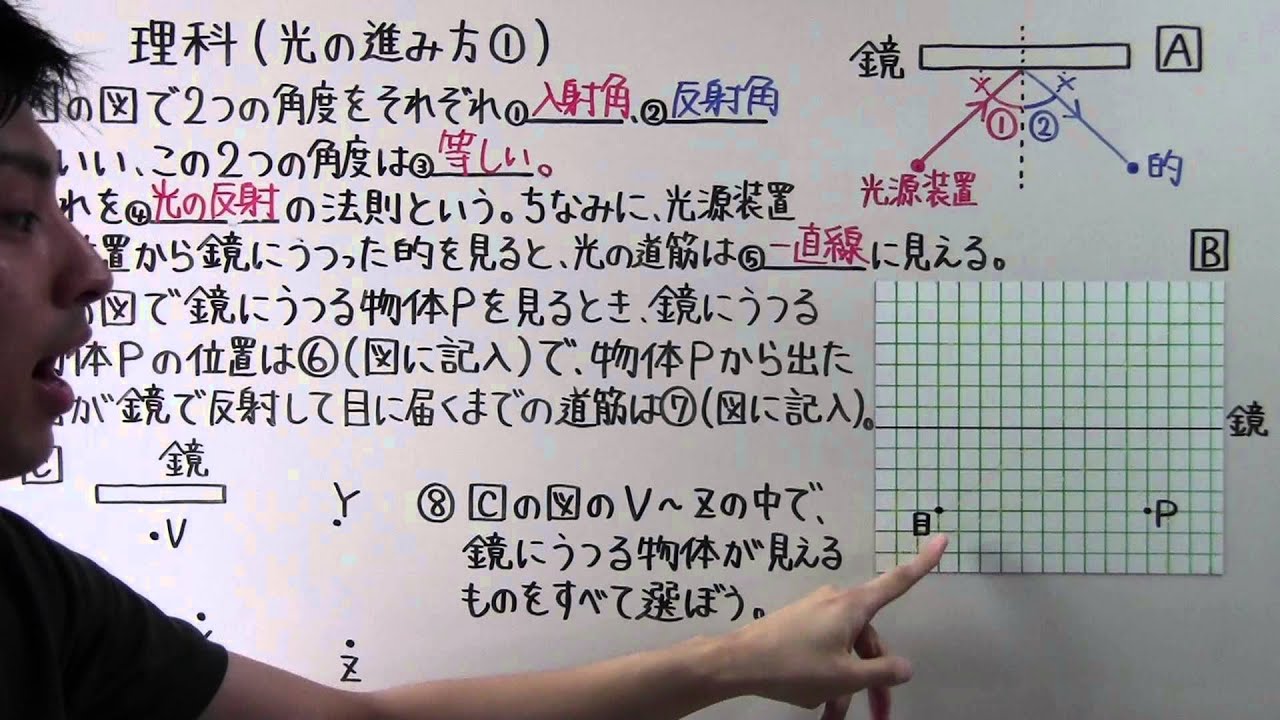 理科(光の進み方①)
の図で2つの角度をそれぞれ①入射角、②反射角
いい、この2つの角度は③等しい。
れを④光の反射の法則という。ちなみに、光源装置
置から鏡にうつった的を見ると、光の道筋は⑤一直線に見える。
図で鏡にうつる物体Pを見るとき、鏡にうつる
体Pの位置は⑥(図に記入)で、物体Pから出た
が鏡で反射して目に届くまでの道筋は⑦(図に記入)。
⑧ Cの図のV～Zの中で、
鏡にうつる物体が見える
ものをすべて選ぼう。
鏡
A
×
×
①
②
光源装置
的
B
鏡
目
P
C
鏡
V
Y
Z